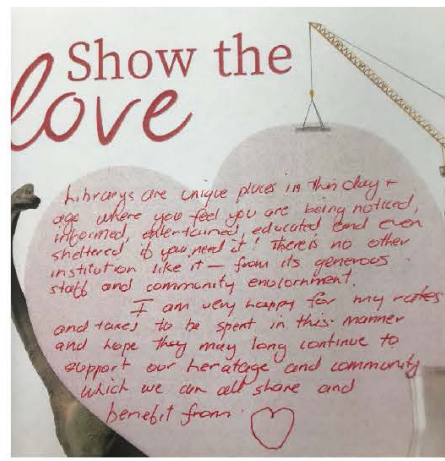 Show the
love
Librarys are unique places in this day +
age where you feel you are being noticed,
informed, entertained, educated and even
sheltered if you need it! There is no other
institution like it — from its generous
staff and community enviornment.
I am very happy for my rates
and taxes to be spent in this manner
and hope they may long continue to
support our heratage and community
which we can all share and
benefit from.